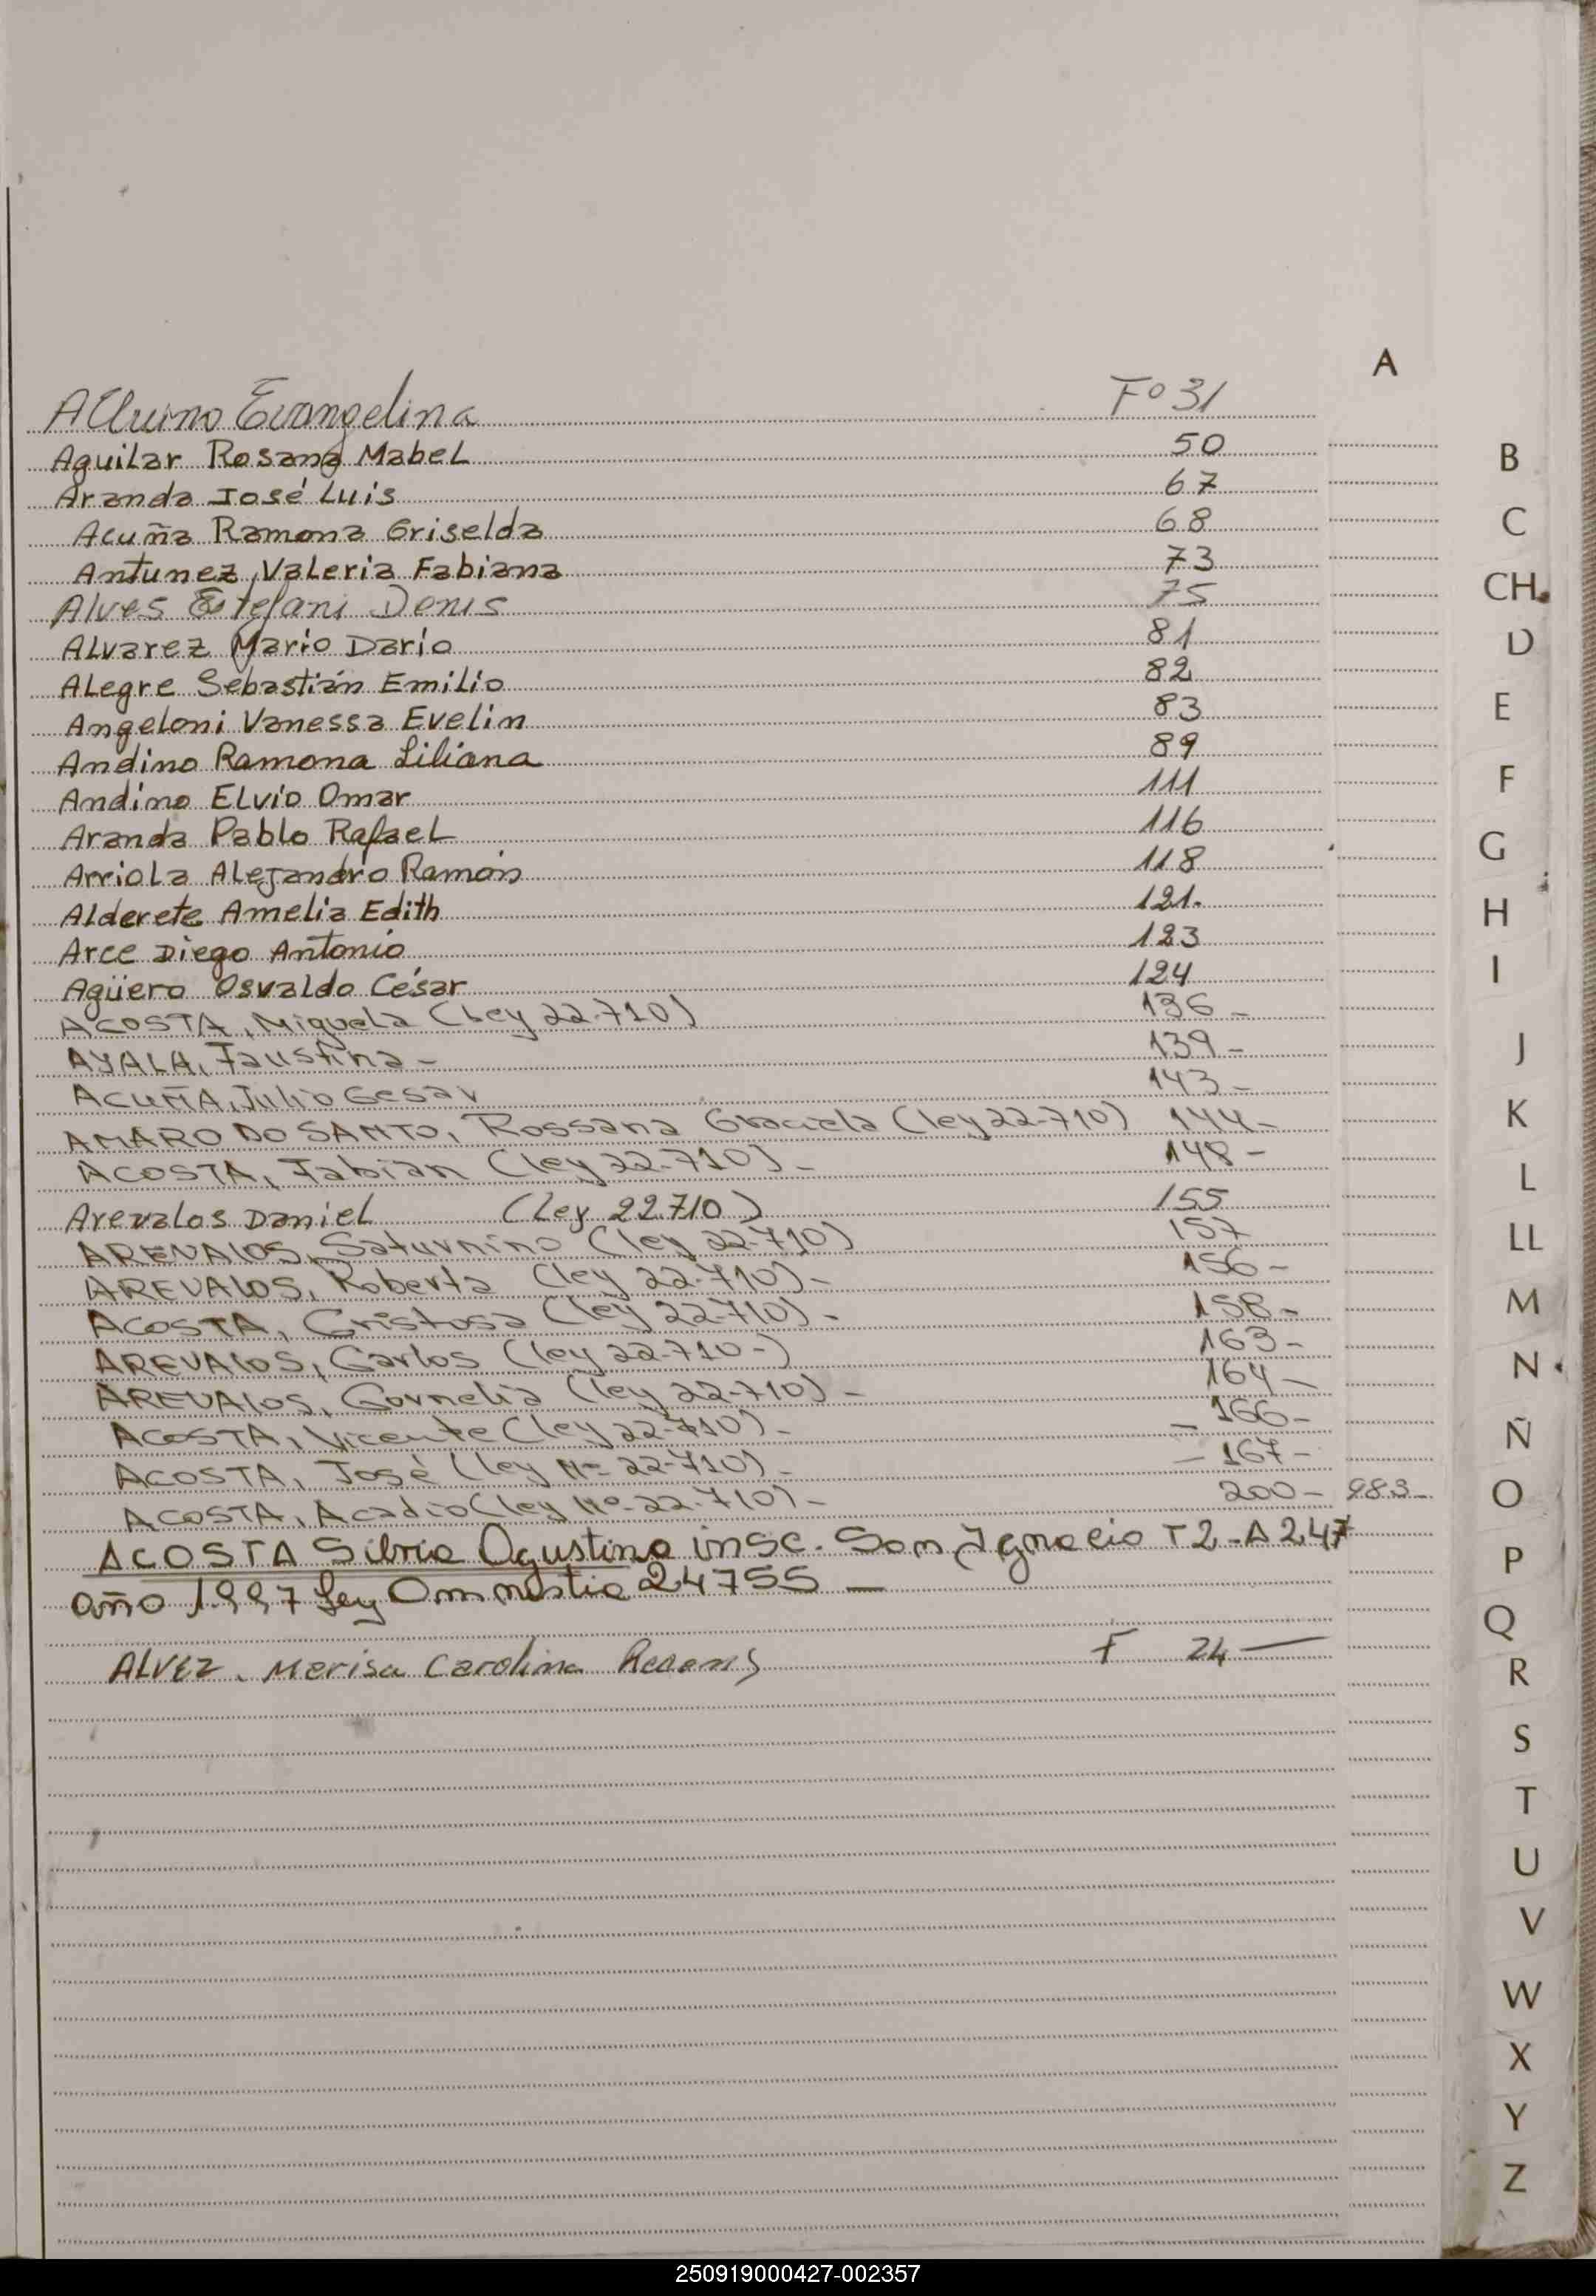 A
Evangelina Fº 31
Aguilar Rosana Mabel 50
Aranda José Luis 67
Acuña Ramona Griselda 68
Antunez Valeria Fabiana 73
Alves Estefani Denis 75
Alvarez Mario Dario 81
Alegre Sebastián Emilio 82
Angeloni Vanessa Evelin 83
Andino Ramona Liliana 89
Andino Elvio Omar 111
Aranda Pablo Rafael 116
Arriola Alejandro Ramón 118
Alderete Amelia Edith 121.
Arce Diego Antonio 123
Agüero Osvaldo César 124
ACOSTA, Miguela (Ley 22.710) 136-
AYALA, Faustina- 139-
ACUÑA, Julio Cesar 143-
AMARO DO SANTO, Rossana Graciela (ley 22-710) 144-
ACOSTA, Fabian (ley 22-710)- 148-
Arevalos Daniel (Ley 22.710) 155
AREVALOS, Saturnino (ley 22-710) 157
AREVALOS, Roberta (ley 22-710)- 156-
ACOSTA, (ley 22-710)- 158-
AREVALOS, Carlos (ley 22-710-) 163-
AREVALOS, Cornelia (ley 22-710)- 164-
ACOSTA, Vicente (ley 22-710)- - 166-
ACOSTA, José (ley Nº 22-710)- - 167-
ACOSTA, Acadio (ley Nº-22-710)- 200- 983-
ACOSTA Silvia Agustina insc. San Ignacio T2-A 247
año 1997 Ley 24755 -
ALVEZ. Marisa Carolina F 24 -
B
C
CH
D
E
F
G
H
I
J
K
L
LL
M
N
Ñ
O
P
Q
R
S
T
U
V
W
X
Y
Z
250919000427-002357